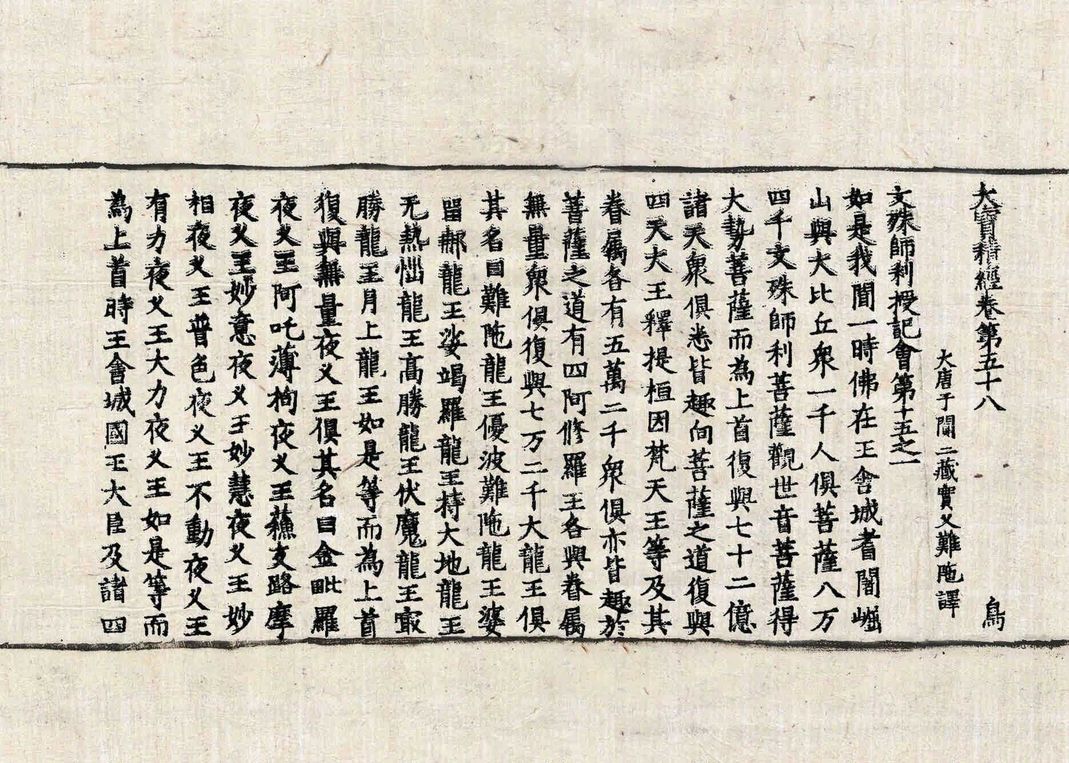 大寶積經卷第五十八 鳥
大唐于闐三藏實叉難陁譯
文殊師利授記會第十五之一
如是我聞一時佛在王舍城耆闍崛
山與大比丘衆一千人俱菩薩八万
四千文殊師利菩薩觀世音菩薩得
大勢菩薩而為上首復與七十二億
諸天衆俱悉皆趣向菩薩之道復與
四天大王釋提桓因梵天王等及其
眷屬各有五萬二千衆俱亦皆趣於
菩薩之道有四阿修羅王各與眷屬
無量衆俱復與七万二千大龍王俱
其名曰難陁龍王優波難陁龍王婆
留那龍王娑竭羅龍王持大地龍王
无熱惱龍王髙勝龍王伏魔龍王㝡
勝龍王月上龍王如是等而為上首
復與無量夜叉王俱其名曰金毗羅
夜叉王阿吒薄拘夜叉王蘓支路摩
夜叉王妙意夜叉王妙慧夜叉王妙
相夜叉王普色夜叉王不動夜叉王
有力夜叉王大力夜叉王如是等而
為上首時王舍城國王大臣及諸四